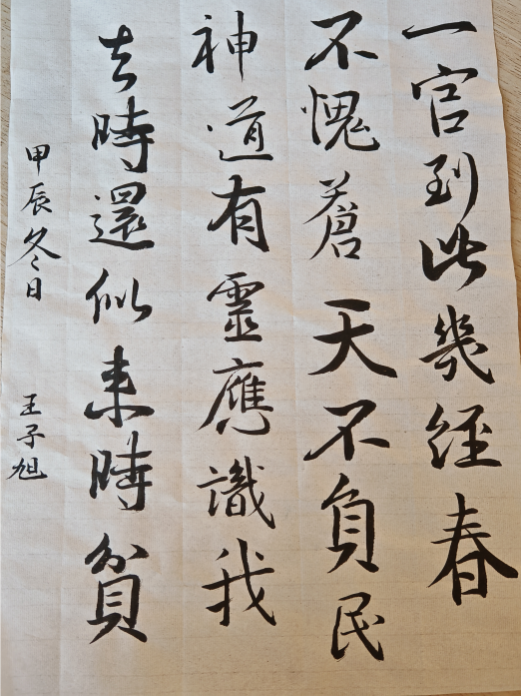 一官到此幾經春
不愧蒼天不負民
神道有靈應識我
去時還似来時貧
甲辰冬日
王子旭